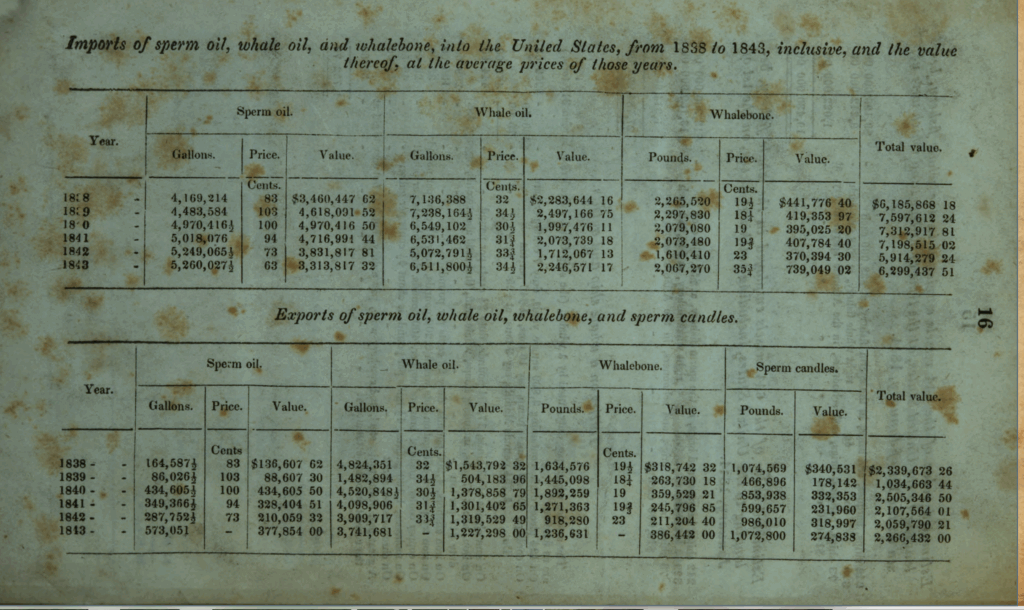 Imports of sperm oil, whale oil, and whalebone, into the United States, from 1838 to 1843, inclusive, and the value
thereof, at the average prices of those years.
Year. Sperm oil. Whale oil. Whalebone. Total value.
Gallons. Price. Value. Gallons. Price. Value. Pounds. Price. Value.
Cents. Cents. Cents.
1838 - 4,169,214 83 $3,460,447 62 7,136,388 32 $2,283,644 16 2,265,520 19½ $441,776 40 $6,185,868 18
1839 - 4,483,584 103 4,618,091 52 7,238,164½ 34½ 2,497,166 75 2,297,830 18¼ 419,353 97 7,597,612 24
18 0 - 4,970,416½ 100 4,970,416 50 6,549,102 30½ 1,997,476 11 2,079,080 19 395,025 20 7,312,917 81
1841 - 5,018,076 94 4,716,991 44 6,531,462 31¾ 2,073,739 18 2,073,480 19¾ 407,784 40 7,198,515 02
1842 - 5,249,065½ 73 3,831,817 81 5,072,791½ 33¾ 1,712,067 13 1,610,410 23 370,394 30 5,914,279 24
1843 - 5,260,027½ 63 3,313,817 32 6,511,800½ 34½ 2,246,571 17 2,067,270 35¾ 739,049 02 6,299,437 51
Exports of sperm oil, whale oil, whalebone, and sperm candles.
Year. Sperm oil. Whale oil. Whalebone. Sperm candles. Total value.
Gallons. Price. Value. Gallons. Price. Value. Pounds. Price. Value. Pounds. Value.
Cents Cents. Cents.
1838 - - 164,587½ 83 $136,607 62 4,824,351 32 $1,543,792 32 1,634,576 19½ $318,742 32 1,074,569 $340,531 $2,339,673 26
1839 - - 86,026½ 103 88,607 30 1,482,894 34½ 504,183 96 1,445,098 18¼ 263,730 18 466,896 178,142 1,034,663 44
1840 - - 434,605½ 100 434,605 50 4,520,848½ 30½ 1,378,858 79 1,892,259 19 359,529 21 853,938 332,353 2,505,346 50
1841 - - 349,366½ 94 328,404 51 4,098,906 31¾ 1,301,402 65 1,271,363 19¾ 245,796 85 599,657 231,960 2,107,564 01
1842 - - 287,752½ 73 210,059 32 3,909,717 33¾ 1,319,529 49 918,280 23 211,204 40 986,010 318,997 2,059,790 21
1843 - - 573,051 - 377,854 00 3,741,681 - 1,227,298 00 1,236,631 - 386,442 00 1,072,800 274,838 2,266,432 00
16